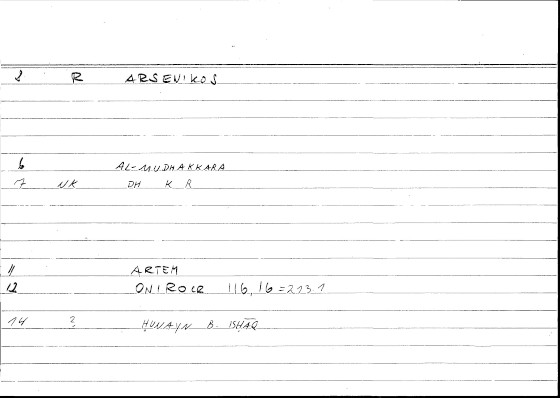 2 R ARSENIKOS
6 AL-MUDHAKKARA
7 NK DH K R
11 ARTEM
12 ONIROCR 116,16=213.1
14 ? ḤUNAYN B. ISḤĀQ